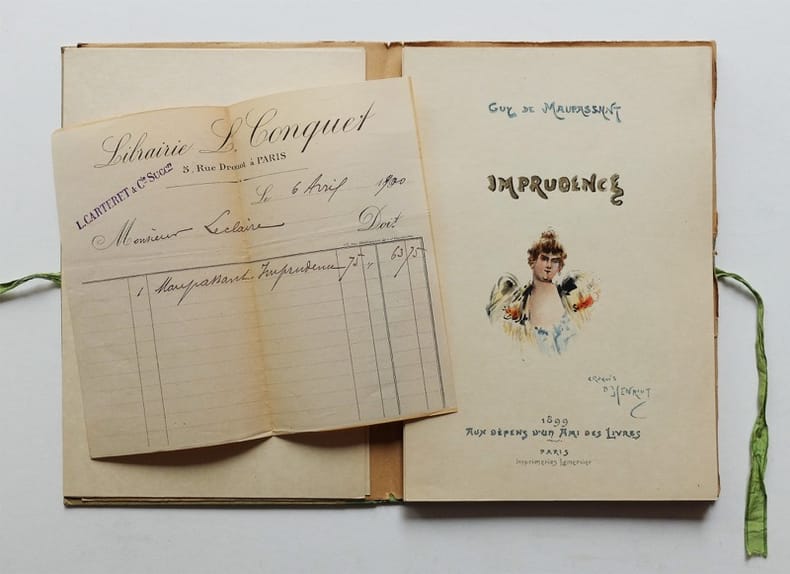 Librairie L. Conquet
5, Rue Drouot à PARIS
L. CARTERET & Cie Succrs
Le 6 Avril 1900
Monsieur Leclaire Doit
1 Maupassant Imprudence 75 " 63 75
GUY DE MAUPASSANT
IMPRUDENCE
CROQUIS
D'HENRIOT
1899
AUX DÉPENS D'UN AMI DES LIVRES
PARIS
Imprimeries Lemercier